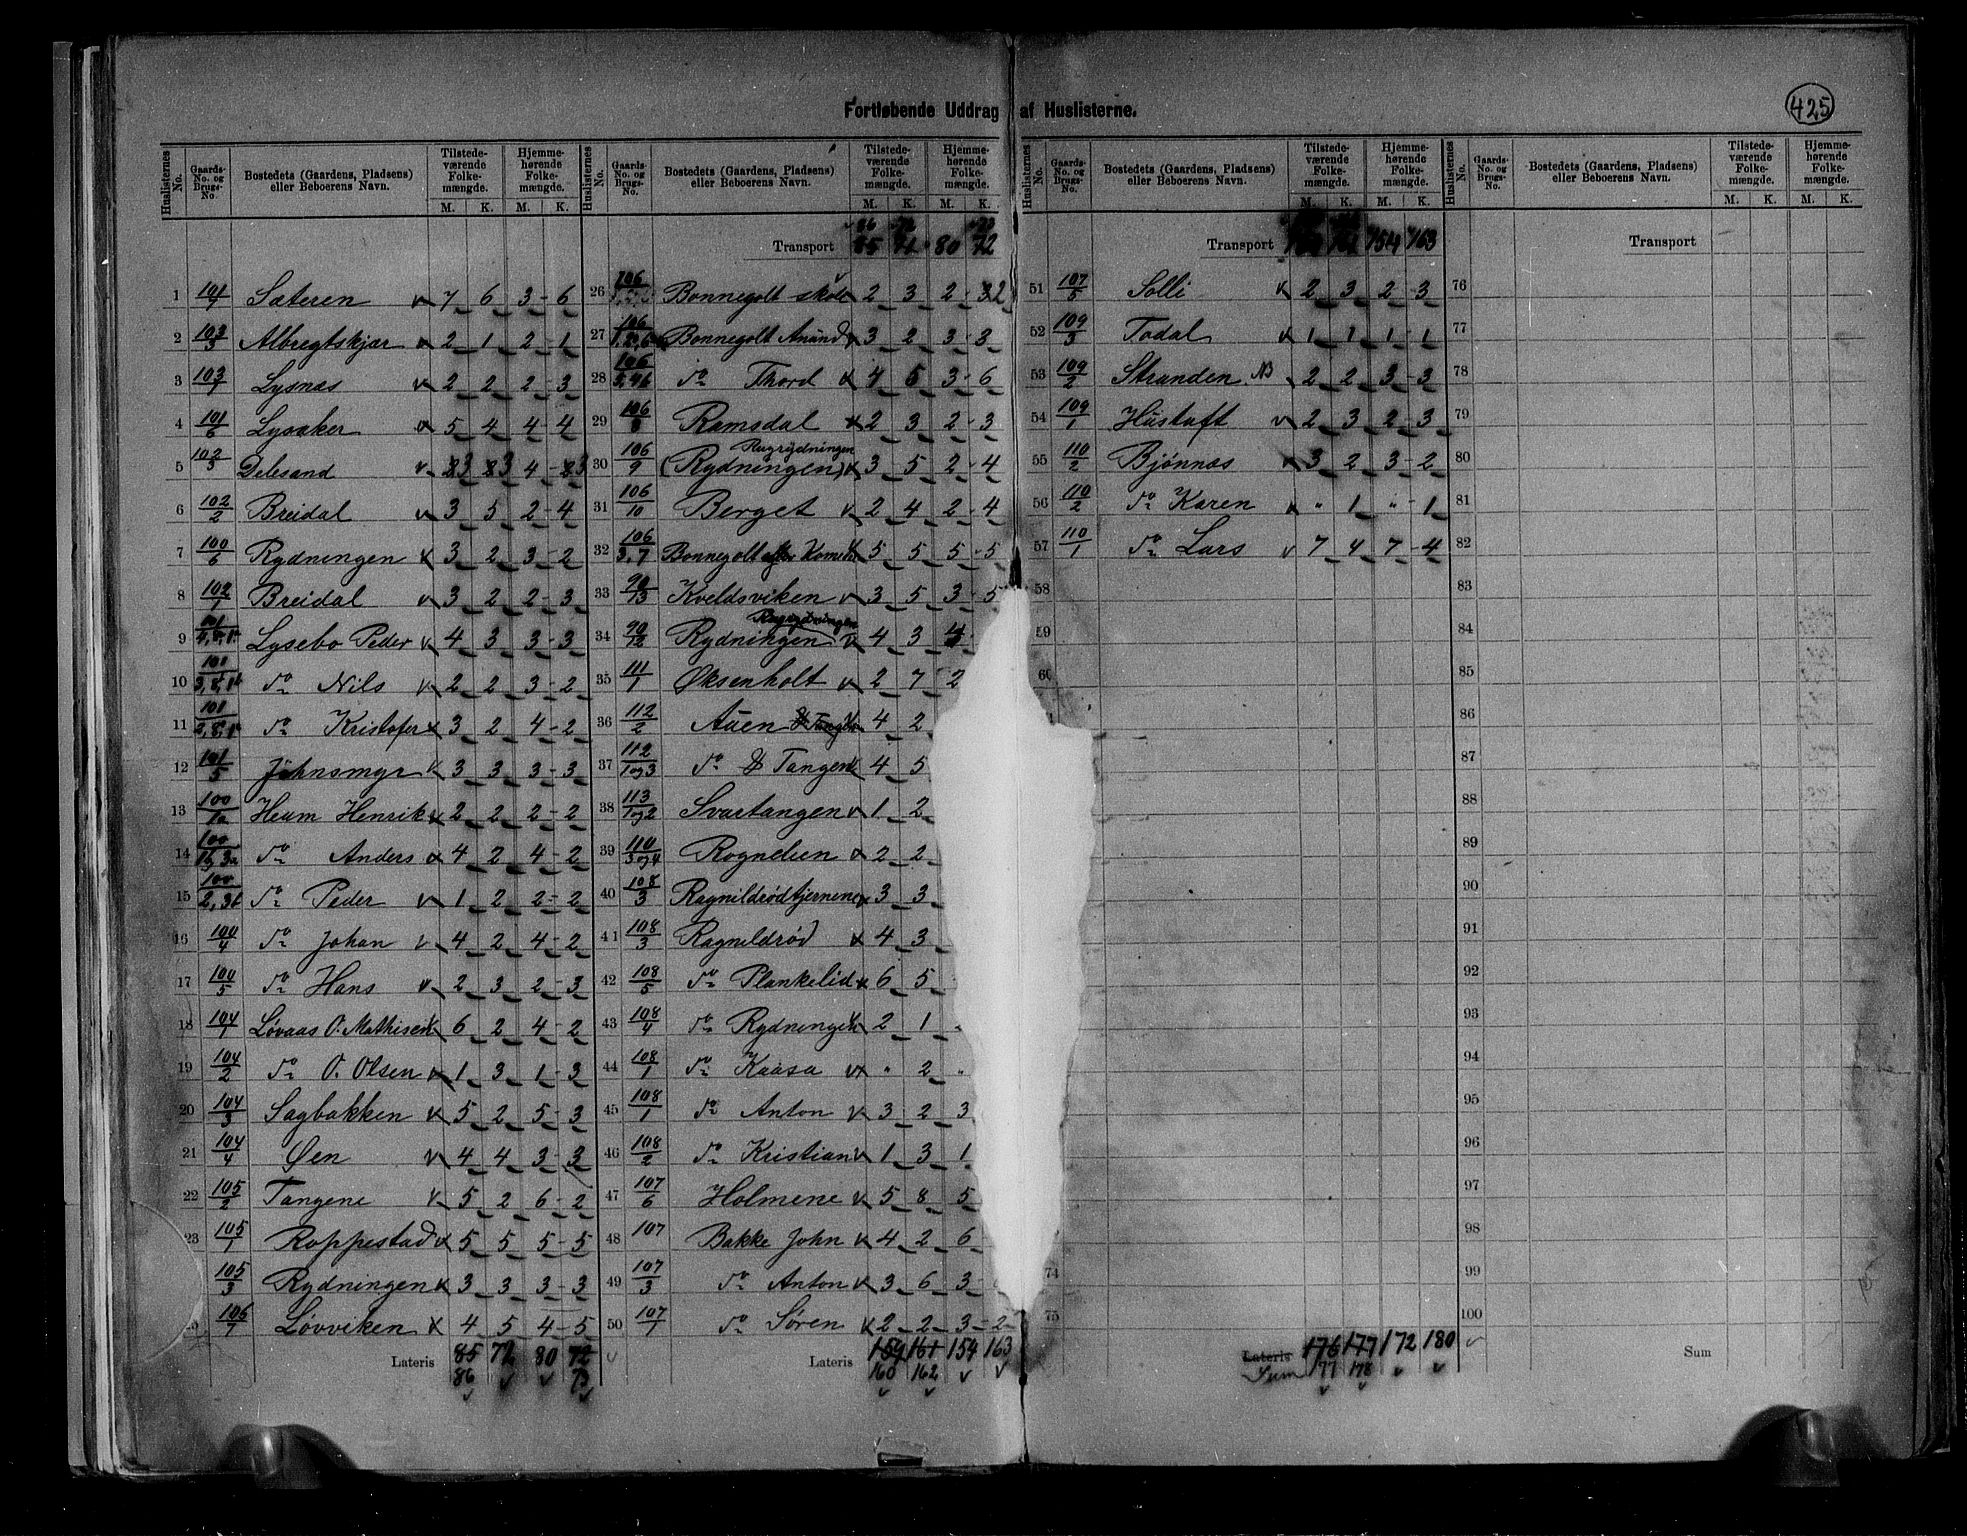 425
Fortløbende Uddrag af Huslisterne.
Huslisternes No. Gaards-No. og Brugs-No. Bostedets (Gaardens, Pladsens) eller Beboerens Navn. Tilstedeværende Folkemængde. M. K. Hjemmehørende Folkemængde. M. K.
1 101/7 Sæteren 7 6 3 6
2 103/3 Albregtskjær 2 1 2 1
3 103/1 Lysnæs 2 2 2 3
4 101/6 Lysaker 5 4 4 4
5 102/3 Delesand 3 3 4 3
6 102/2 Breidal 3 5 2 4
7 100/6 Rydningen 3 2 3 2
8 102/1 Breidal 3 2 2 3
9 101/ Lysebo Peder 4 3 3 3
10 101/ do Nils 2 2 3 2
11 101/ do Kristofer 3 2 4 2
12 101/5 Johnsmyr 3 3 3 3
13 100/1a Heum Henrik 2 2 2 2
14 100/ do Anders 4 2 4 2
15 100/ do Peder 1 2 2 2
16 100/4 do Johan 4 2 4 2
17 100/5 do Hans 2 3 2 3
18 104/1 Løvaas O. Mathisen 6 2 4 2
19 104/2 do O. Olsen 1 3 1 3
20 104/3 Sagbakken 5 2 5 3
21 104/4 Øen 4 4 3 3
22 105/2 Tangene 5 2 6 2
23 105/1 Roppestad 5 5 5 5
105/3 Rydningen 3 3 3 3
106/7 Løvviken 4 5 4 5
Lateris 85 72 80 72
86 73
Huslisternes No. Gaards-No. og Brugs-No. Bostedets (Gaardens, Pladsens) eller Beboerens Navn. Tilstedeværende Folkemængde. M. K. Hjemmehørende Folkemængde. M. K.
86 72 73
Transport 85 71 80 72
26 106/ Bonnegolt skole 2 3 2 2
27 106/ Bonnegolt Anund 3 2 3 3
28 106/ do Thord 4 5 3 6
29 106/8 Ramsdal 2 3 2 3
Rugrydningen
30 106/9 (Rydningen) 3 5 2 4
31 106/10 Berget 2 4 2 4
32 106/3,7 Bonnegolt 5 5 5 5
33 90/13 Kveldsviken 3 5 3 5
Rugrydningen
34 90/12 Rydningen 4 3 4
35 111/1 Øksenholt 2 7 2
36 112/2 Auen 4 2
37 112/1og3 do Tangen 4 5
38 113/1og2 Svartangen 1 2
39 110/3og4 Rognelien 2 2
40 108/3 Ragnildrødtjernene 3 3
41 108/3 Ragnildrød 4 3
42 108/5 do Plankelid 6 5
43 108/4 do Rydningen 2 1
44 108/1 do Kaasa " 2 "
45 108/1 do Anton 3 2 3
46 108/2 do Kristian 1 3 1
47 107/6 Holmene 5 8 5
48 107 Bakke John 4 2 6
49 107/3 do Anton 3 6 3
50 107/1 do Søren 2 2 3 2
Lateris 159 161 154 163
160 162
Huslisternes No. Gaards-No. og Brugs-No. Bostedets (Gaardens, Pladsens) eller Beboerens Navn. Tilstedeværende Folkemængde. M. K. Hjemmehørende Folkemængde. M. K.
Transport 154 163
51 107/5 Solli 2 3 2 3
52 109/3 Todal 1 1 1 1
53 109/2 Stranden NB 2 2 3 3
54 109/1 Hustoft 2 3 2 3
55 110/2 Bjønnæs 3 2 3 2
56 110/2 do Karen " 1 " 1
57 110/1 do Lars 7 4 7 4
58
59
60
74
75
Lateris 176 177 172 180
Sum 177 178
Huslisternes No. Gaards-No. og Brugs-No. Bostedets (Gaardens, Pladsens) eller Beboerens Navn. Tilstedeværende Folkemængde. M. K. Hjemmehørende Folkemængde. M. K.
Transport
76
77
78
79
80
81
82
83
84
85
86
87
88
89
90
91
92
93
94
95
96
97
98
99
100
Sum